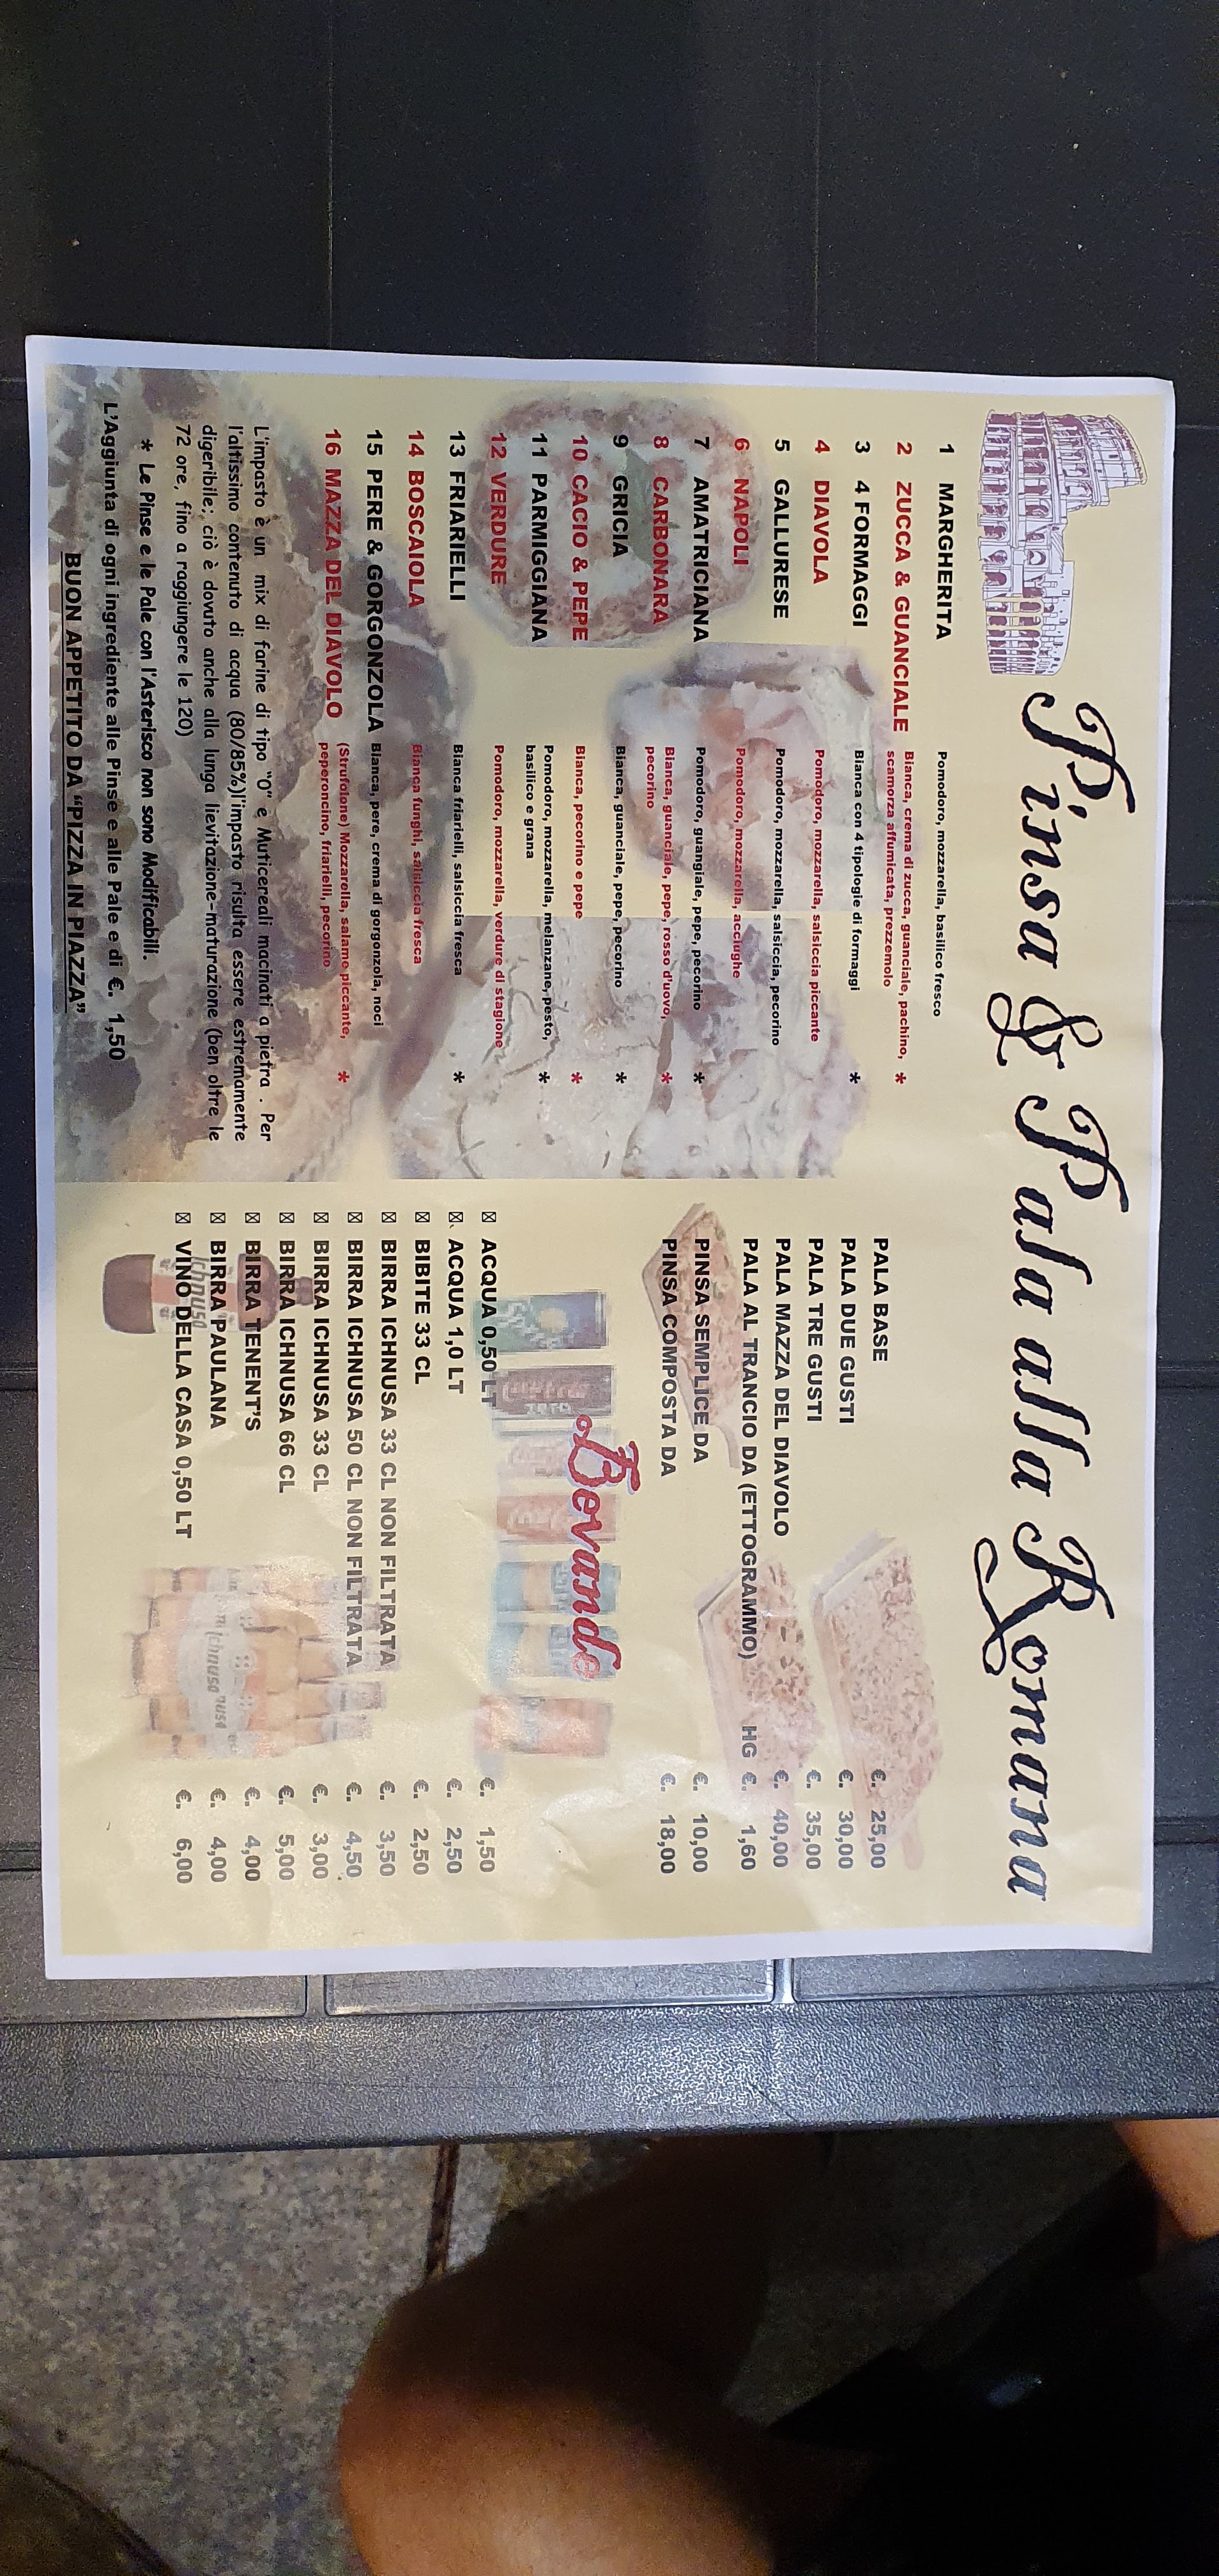 Pinsa & Pala alla Romana
1 MARGHERITA Pomodoro, mozzarella, basilico fresco
2 ZUCCA & GUANCIALE Bianca, crema di zucca, guanciale, pachino, *
scamorza affumicata, prezzemolo
3 4 FORMAGGI Bianca con 4 tipologie di formaggi *
4 DIAVOLA Pomodoro, mozzarella, salsiccia piccante
5 GALLURESE Pomodoro, mozzarella, salsiccia, pecorino
6 NAPOLI Pomodoro, mozzarella, acciughe
7 AMATRICIANA Pomodoro, guangiale, pepe, pecorino *
8 CARBONARA Bianca, guanciale, pepe, rosso d'uovo, *
pecorino
9 GRICIA Bianca, guanciale, pepe, pecorino *
10 CACIO & PEPE Bianca, pecorino e pepe *
11 PARMIGGIANA Pomodoro, mozzarella, melanzane, pesto, *
basilico e grana
12 VERDURE Pomodoro, mozzarella, verdure di stagione
13 FRIARIELLI Bianca friarielli, salsiccia fresca *
14 BOSCAIOLA Bianca funghi, salsiccia fresca
15 PERE & GORGONZOLA Bianca, pere, crema di gorgonzola, noci
16 MAZZA DEL DIAVOLO (Strufolone) Mozzarella, salame piccante, *
peperoncino, friarielli, pecorino
L'impasto è un mix di farine di tipo "0" e Muticereali macinati a pietra . Per
l'altissimo contenuto di acqua (80/85%)l'impasto risulta essere estremamente
digeribile:, ciò è dovuto anche alla lunga lievitazione-maturazione (ben oltre le
72 ore, fino a raggiungere le 120)
* Le Pinse e le Pale con l'Asterisco non sono Modificabili.
L'Aggiunta di ogni ingrediente alle Pinse e alle Pale e di €. 1,50
BUON APPETITO DA "PIZZA IN PIAZZA"
PALA BASE €. 25,00
PALA DUE GUSTI €. 30,00
PALA TRE GUSTI €. 35,00
PALA MAZZA DEL DIAVOLO €. 40,00
PALA AL TRANCIO DA (ETTOGRAMMO) HG €. 1,60
PINSA SEMPLICE DA €. 10,00
PINSA COMPOSTA DA €. 18,00
Bevande
ACQUA 0,50 LT €. 1,50
ACQUA 1,0 LT €. 2,50
BIBITE 33 CL €. 2,50
BIRRA ICHNUSA 33 CL NON FILTRATA €. 3,50
BIRRA ICHNUSA 50 CL NON FILTRATA €. 4,50
BIRRA ICHNUSA 33 CL €. 3,00
BIRRA ICHNUSA 66 CL €. 5,00
BIRRA TENENT'S €. 4,00
BIRRA PAULANA €. 4,00
VINO DELLA CASA 0,50 LT €. 6,00
Ichnusa
Ichnusa